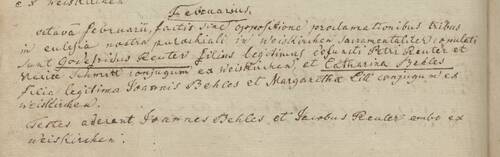 ex weiskirchen
Februarius.
octavâ februarii, factis sunt propositione proclamationibus tribus
in eclesia nostra parochiali in Weiskirchen sacramentaliter copulati
sunt Godefridus Reuter filius legitimus defuncti Petri Reuter et
Mariæ Schmitt conjugum ex weiskirchen, et Catharina Behles
filia legitima Joannis Behles et Margarethæ Lill conjugum ex
weiskirchen.
Testes aderant, Joannes Behles et Jacobus Reuter ambo ex
weiskirchen.